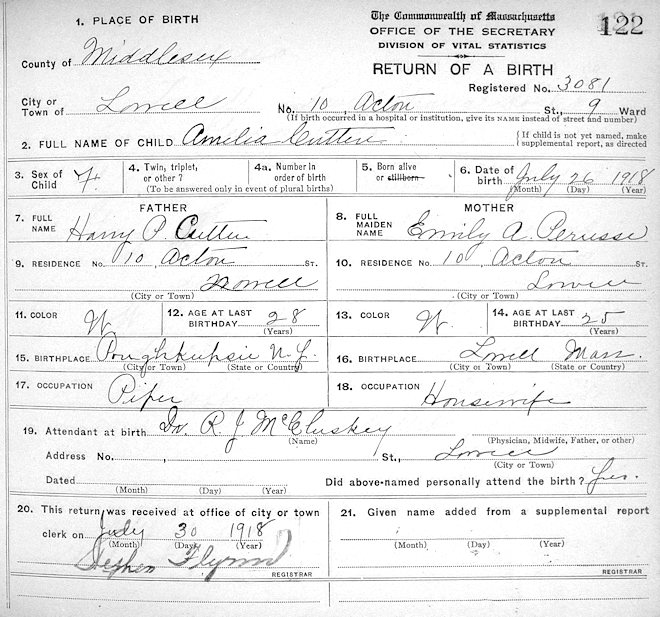 The Commonwealth of Massachusetts
122
OFFICE OF THE SECRETARY
DIVISION OF VITAL STATISTICS
RETURN OF A BIRTH
Registered No. 3081
1. PLACE OF BIRTH
County of Middlesex
City or Town of Lowell No. 10, Acton St., 9 Ward
(If birth occurred in a hospital or institution, give its NAME instead of street and number)
2. FULL NAME OF CHILD Amelia Cutter {If child is not yet named, make supplemental report, as directed
3. Sex of Child F. 4. Twin, triplet, or other? 4a. Number in order of birth 5. Born alive or stillborn 6. Date of birth July 26 1918
(To be answered only in event of plural births) (Month) (Day) (Year)
FATHER
7. FULL NAME Harry P. Cutter
9. RESIDENCE No. 10, Acton ST.
Lowell
(City or Town)
11. COLOR W. 12. AGE AT LAST BIRTHDAY 28
(Years)
15. BIRTHPLACE Poughkeepsie N.Y.
(City or Town) (State or Country)
17. OCCUPATION
Piper
MOTHER
8. FULL MAIDEN NAME Emily A. Perusse
10. RESIDENCE No. 10, Acton ST.
Lowell
(City or Town)
13. COLOR W. 14. AGE AT LAST BIRTHDAY 25
(Years)
16. BIRTHPLACE Lowell Mass.
(City or Town) (State or Country)
18. OCCUPATION
Housewife
19. Attendant at birth Dr. R. J. McCluskey
(Name) (Physician, Midwife, Father, or other)
Address No. , St., Lowell
(City or Town)
Dated Did above-named personally attend the birth? Yes.
(Month) (Day) (Year)
20. This return was received at office of city or town
clerk on July 30 1918
(Month) (Day) (Year)
Stephen Flynn
REGISTRAR
21. Given name added from a supplemental report
(Month) (Day) (Year)
REGISTRAR